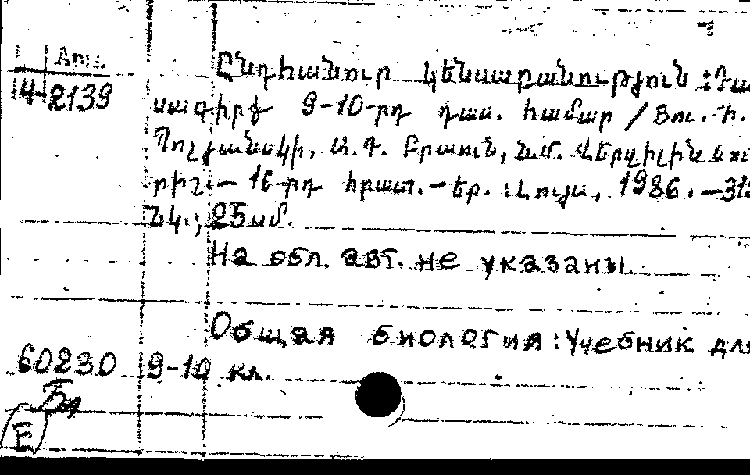 Հու.
Ընդհանուր կենսաբանություն : Դա
14-2139 սագիրք 9-10-րդ դաս. համար / Յու. Ի.
Պոլյանսկի, Ա. Դ. Բրաուն, Ն.Մ. Վերզիլին և ու
րիշ. - 16-րդ հրատ. - Եր. : Լույս, 1986. - 313
նկ.; 25 սմ.
На обл. авт. не указаны.
Общая биология : Учебник для
60230 9-10 кл.
Е